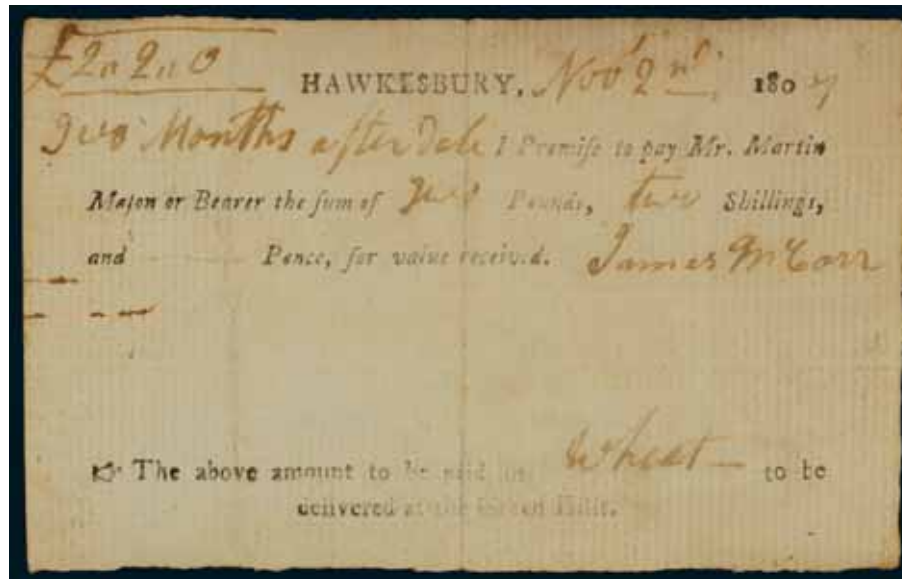 £2 „ 2 „ 0
HAWKESBURY, Novr 2nd. 180
Two Months after Date I Promiſe to pay Mr. Martin
Maſon or Bearer the ſum of Two Pounds, two Shillings,
and Pence, for value received. James McCarr
☞ The above amount to be paid in Wheat — to be
delivered at the Green Hills.